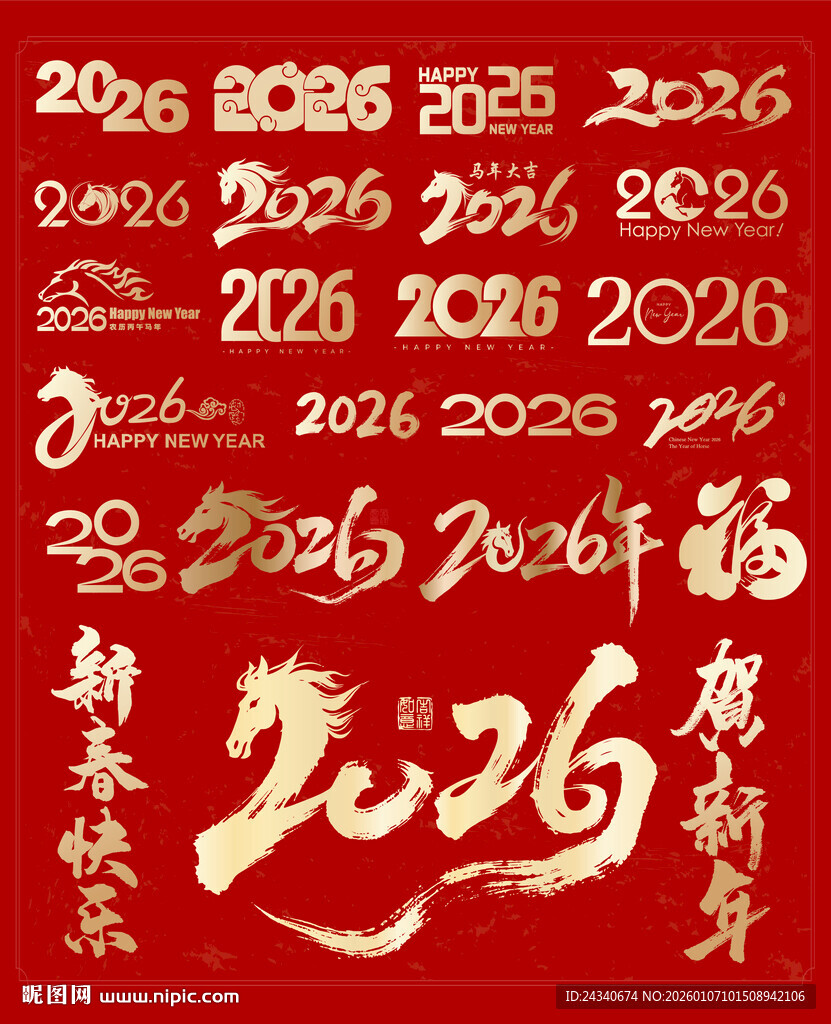 2026
2026
HAPPY
2026
NEW YEAR
2026
2026
2026
马年大吉
2026
2026
Happy New Year!
2026
Happy New Year
农历丙午马年
2026
- HAPPY NEW YEAR -
2026
- HAPPY NEW YEAR -
2026
HAPPY
New Year
2026
HAPPY NEW YEAR
2026
2026
2026
Chinese New Year 2026
The Year of Horse
20
26
2026
2026年
福
新春快乐
2026
吉祥
如意
贺新年
昵图网 www.nipic.com
ID:24340674 NO:20260107101508942106